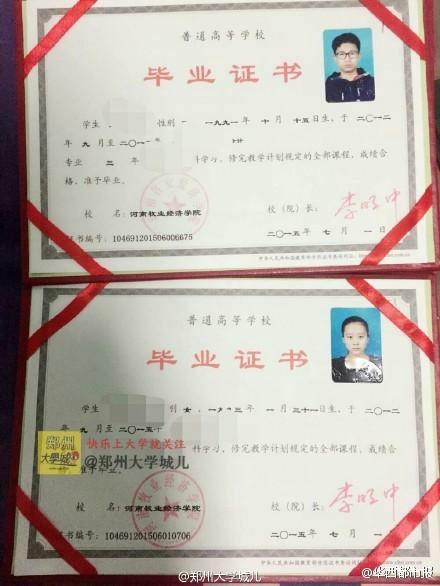 普通高等学校
毕业证书
学生 性别 一九九一年 十 月 十五日生，于 二〇一二
年 九 月至 二〇一
专业 三 年 科学习，修完教学计划规定的全部课程，成绩合
格，准予毕业。
校 名：河南牧业经济学院 校（院）长：李明中
证书编号：104691201506006675 二〇一五年 七 月 一 日
普通高等学校
毕业证书
学生 别 女，一九 三年 一 月 三十一日生，于 二〇一二
年 九 月至 二〇一五
科学习，修完教学计划规定的全部课程，成绩合
准予毕业。
郑州
大学城
快乐上大学就关注
@郑州大学城儿
校 名：河南牧业经济学院 校（院）长：李明中
证书编号：104691201506010706 二〇一五年 七 月 一
@郑州大学城儿
@华西都市报